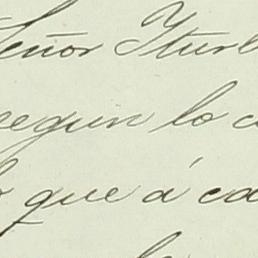 Señor Yturb
segun lo c
que á ca